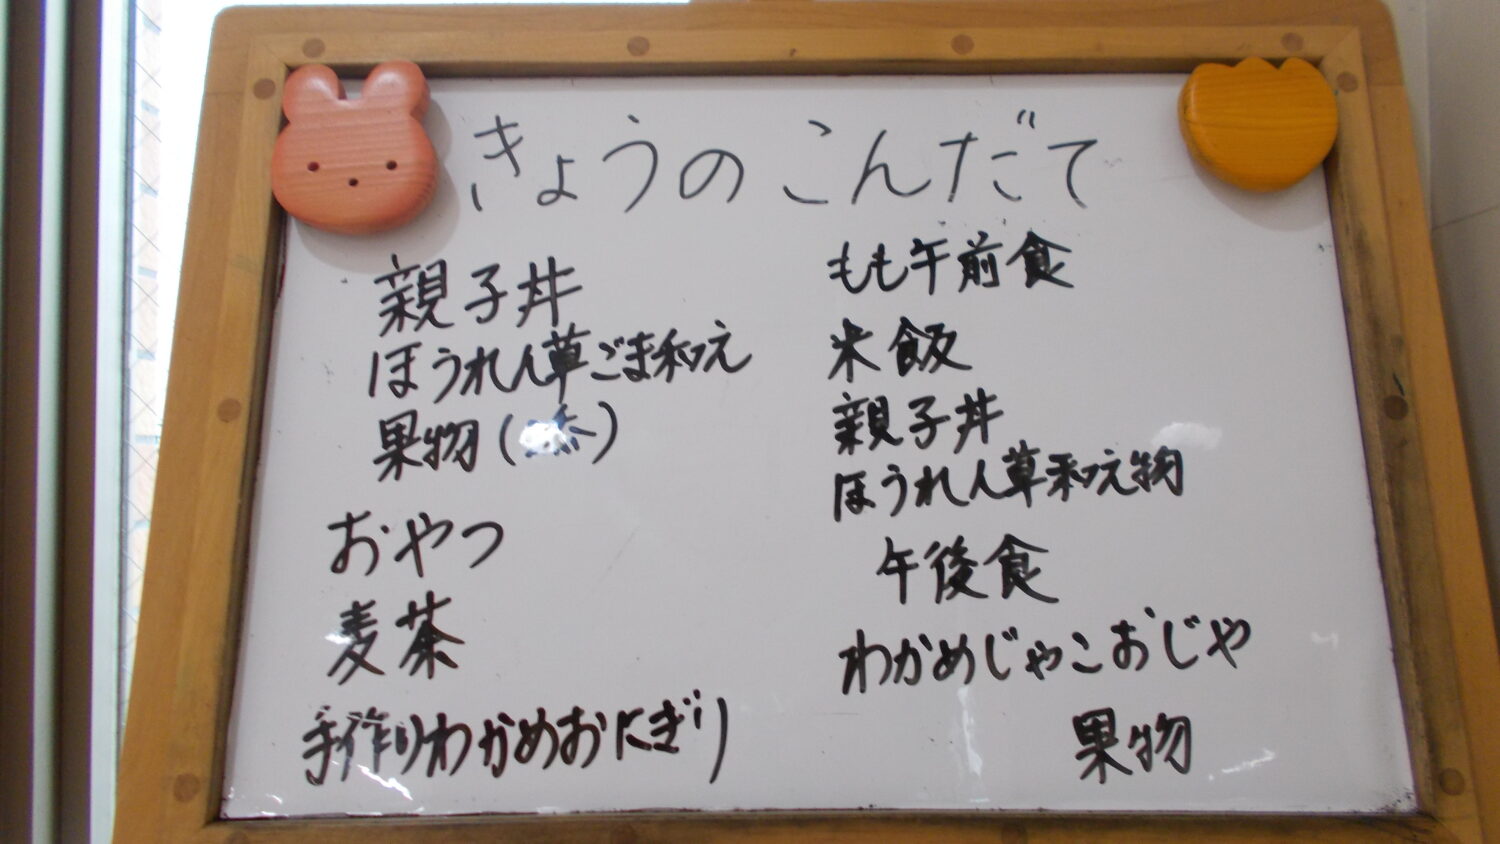 きょうのこんだて
親子丼
ほうれん草ごま和え
果物( )
おやつ
麦茶
手作りわかめおにぎり
もも午前食
米飯
親子丼
ほうれん草和え物
午後食
わかめじゃこおじや
果物